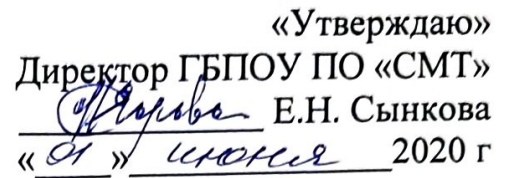 «Утверждаю»
Директор ГБПОУ ПО «СМТ»
Е.Н. Сынкова
«01» июня 2020 г